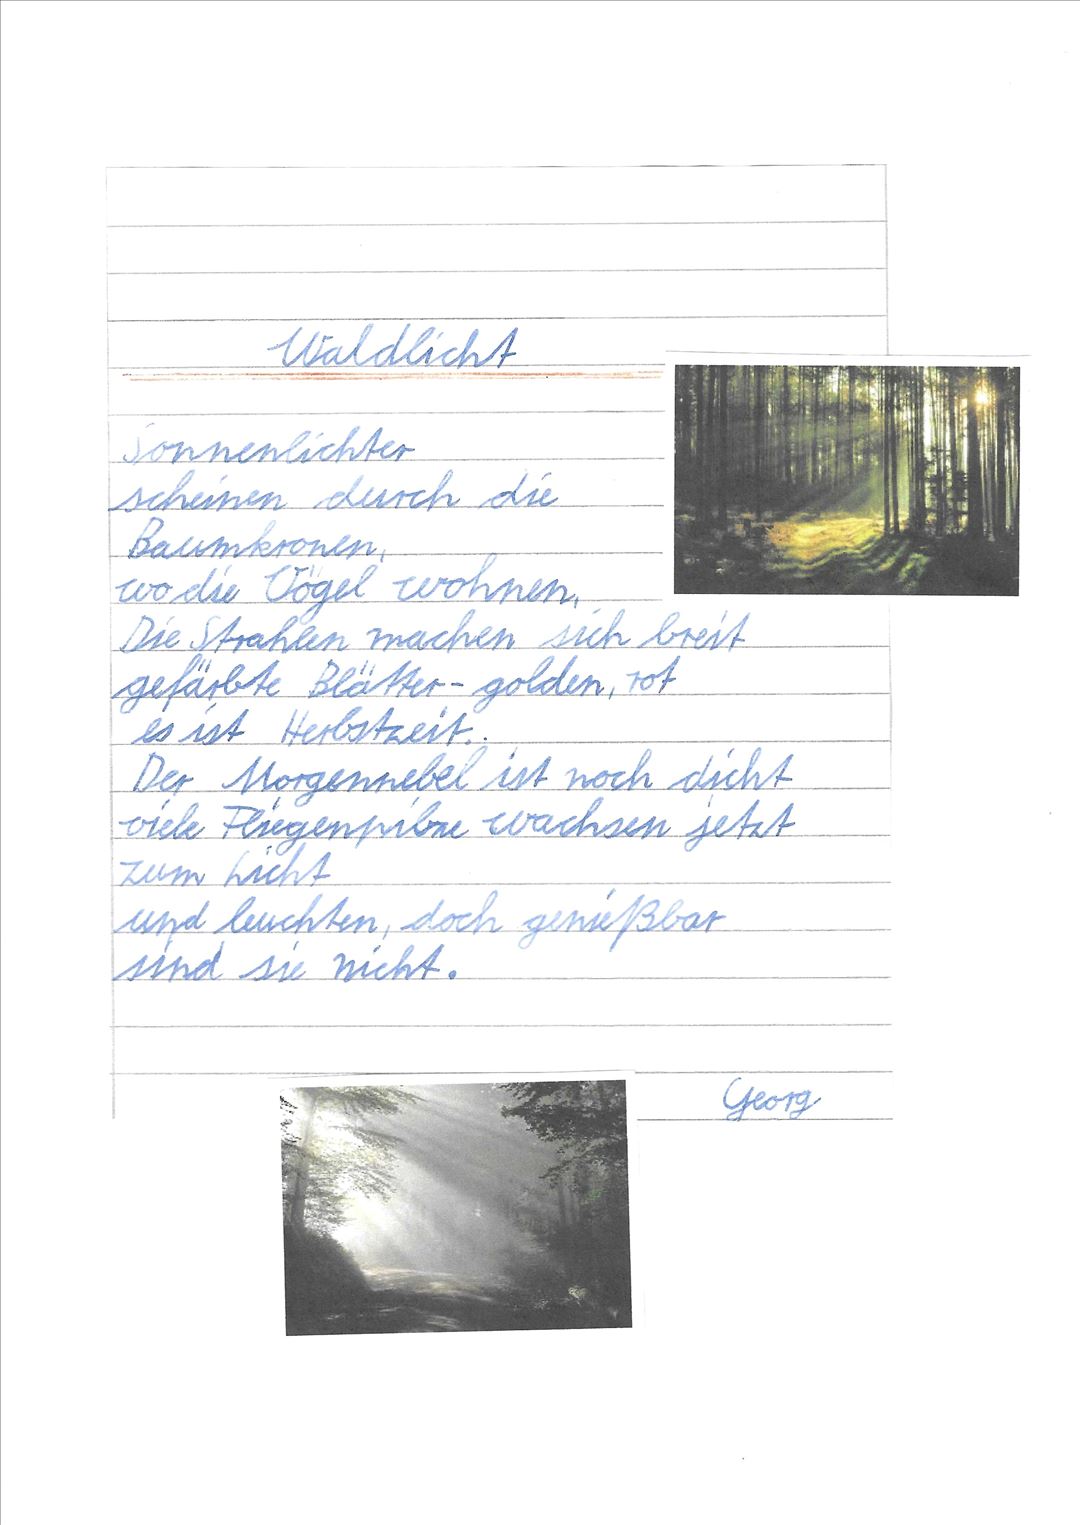 Waldlicht
Sonnenlichter
scheinen durch die
Baumkronen,
wo die Vögel wohnen,
Die Strahlen machen sich breit
gefärbte Blätter - golden, rot
es ist Herbstzeit..
Der Morgennebel ist noch dicht
viele Fliegenpilze wachsen jetzt
zum Licht
und leuchten, doch genießbar
sind sie nicht.
Georg